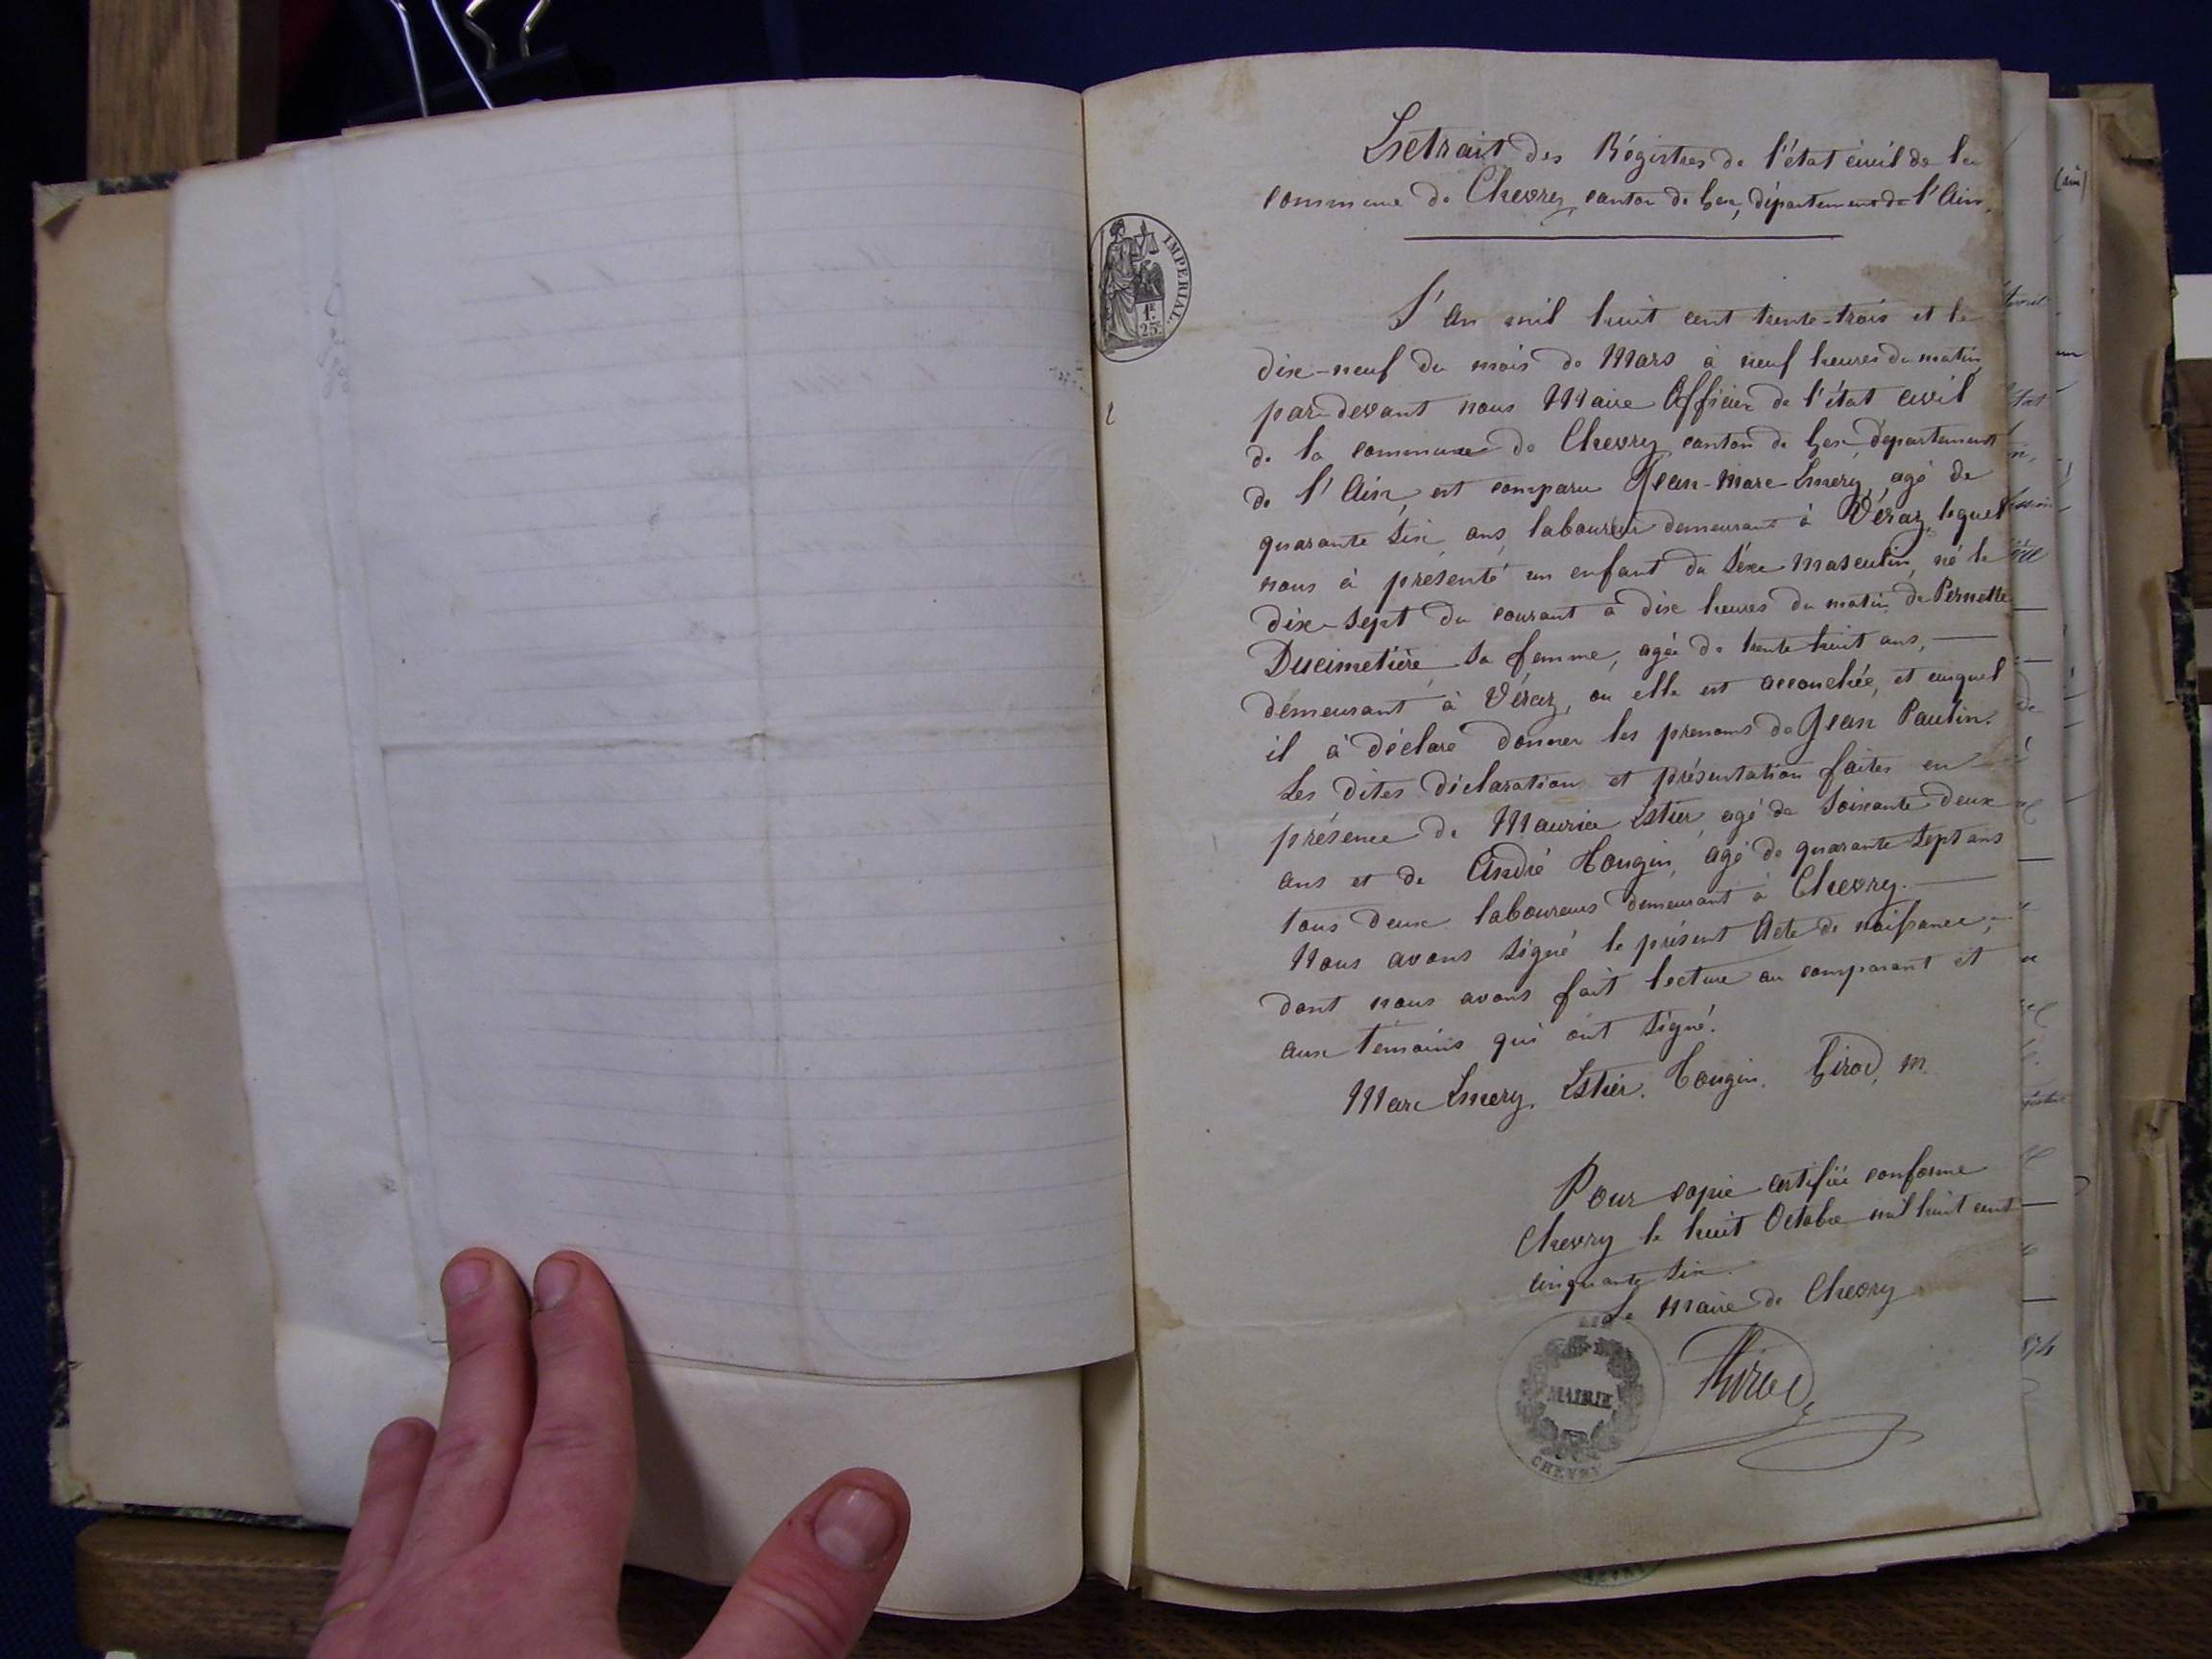 Extrait des Régistres de l'état civil de la
commune de Chevry, canton de Gex, département de l'Ain.
IMPERIAL.
1f.
25c.
L'An mil huit cent trente-trois et le
dix-neuf du mois de Mars à neuf heures du matin
par-devant nous Maire Officier de l'état civil
de la commune de Chevry canton de Gex, département
de l'Ain, est comparu Jean-Marc Emery, agé de
quarante six ans, laboureur demeurant à Véraz, lequel
nous à présenté un enfant du séxe masculin, né le
dix-sept du courant à dix heures du matin de Pernette
Ducimetière, sa femme, agée de trente huit ans, —
demeurant à Véraz, ou elle est accouchée, et auquel
il à déclaré donner les prenoms de Jean Paulin.
Les dites déclaration et présentation faites en
présence de Maurice Estier, agé de soixante-deux
ans et de André Hougin, agé de quarante sept ans
tous deux laboureurs demeurant à Chevry. —
Nous avons signé le présent Acte de naissance,
dont nous avons fait lecture au comparant et
aux témoins qui ont signé.
Marc Emery. Estier. Hougin. Girod, m.
Pour copie certifiée conforme
Chevry le huit Octobre mil huit cent
cinquante six.
Le maire de Chevry
MAIRIE
CHEVRY
Girod